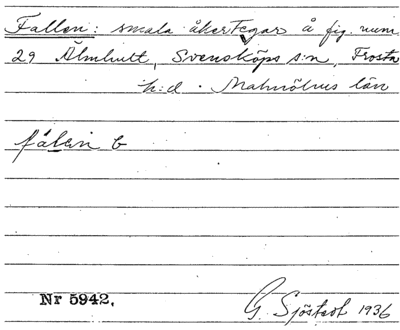 Fallen: smala åkertegar å fig. num
29 Älmhult, Svensköps s:n, Frosta
h:d. Malmöhus län
fålen b
Nr 5942,
G. Sjöstedt 1936